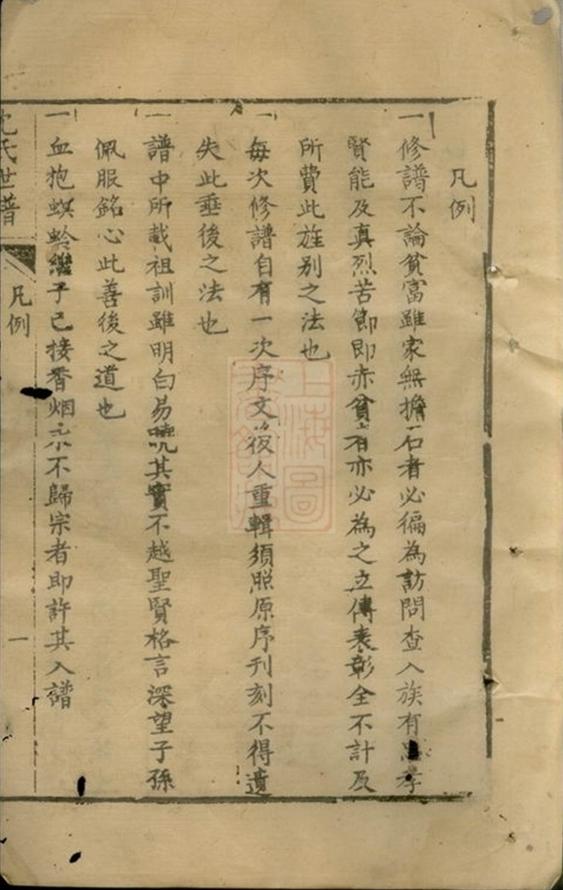 凡例
一修譜不論貧富雖家無擔石者必徧為訪問查入族有忠孝
賢能及真烈苦節即赤貧者亦必為之立傳表彰全不計及
所費此旌别之法也
一每次修譜自有一次序文後人重輯須照原序刊刻不得遺
失此垂後之法也
一譜中所載祖訓雖明白易曉其實不越聖賢格言深望子孫
佩服銘心此善後之道也
一血抱螟蛉繼子已接香烟永不歸宗者即許其入譜
沈氏世譜
凡例
一
上海圖